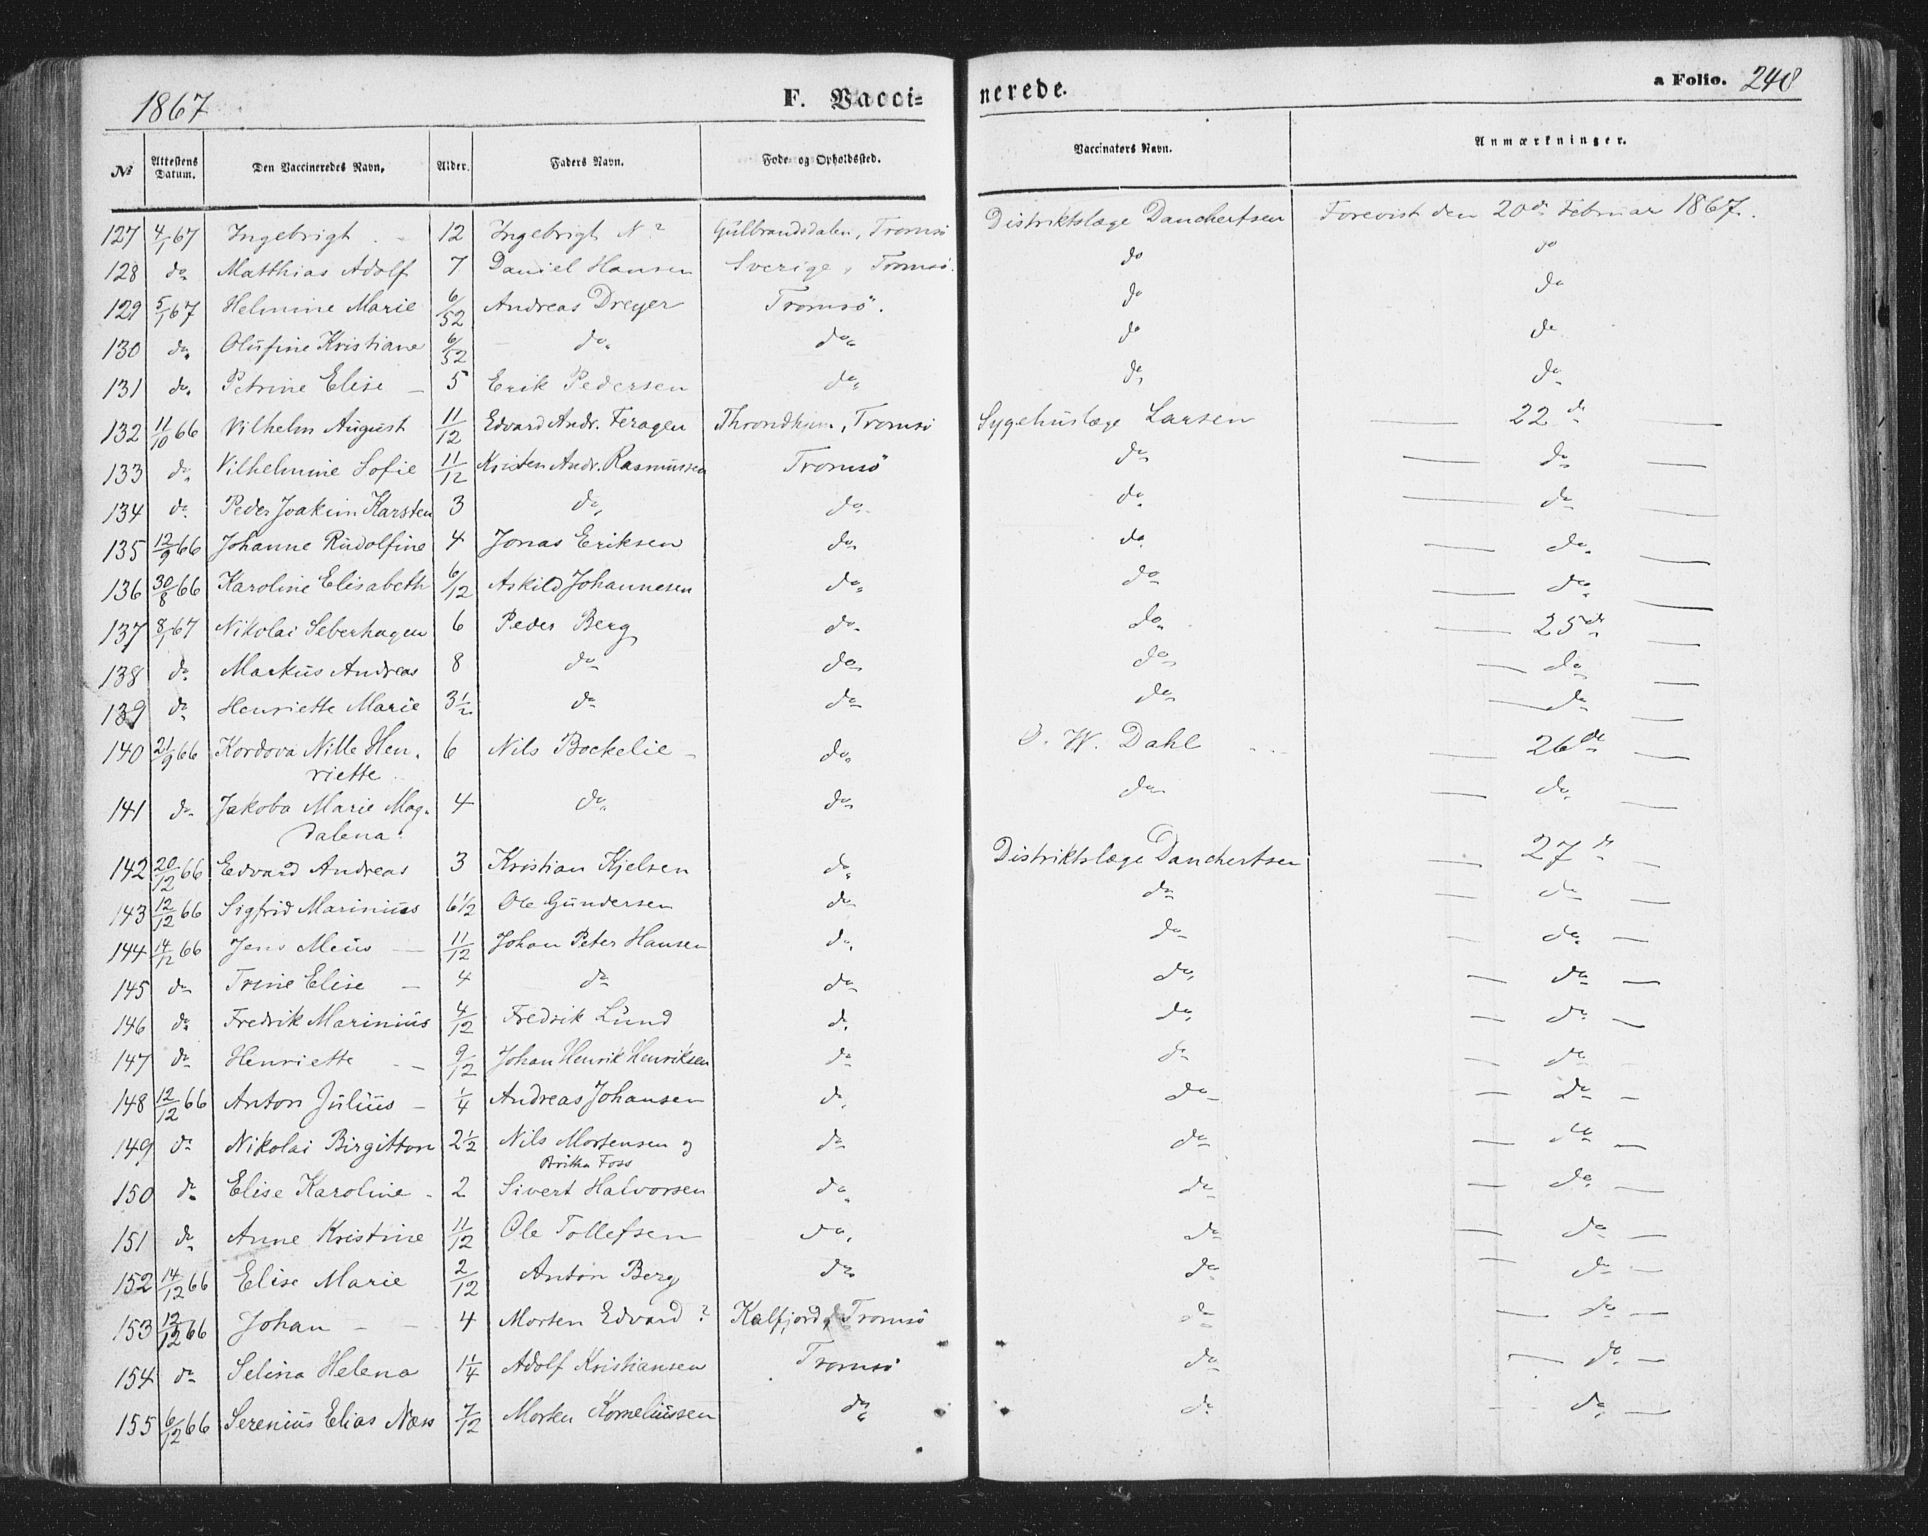 1867 F. Vacci= nerede. a Folio. 248
No Attestens Datum. Den Vaccineredes Navn. Alder. Faders Navn. Føde- og Opholdssted. Vaccinators Navn. Anmærkninger.
127 4/1 67 Ingebrigt - 12 Ingebrigt N? Gulbrandsdalen, Tromsø Distriktslæge Danchertsen Forevist den 20de Februar 1867.
128 do Matthias Adolf 7 Daniel Hansen Sverige, Tromsø. do do
129 5/1 67 Helmine Marie 6/52 Andreas Dreyer Tromsø. do do
130 do. Olufine Kristiane 6/52 do. do. do do
131 do. Petrine Elise - 5 Erik Pedersen do. do. do
132 11/10 66 Vilhelm August 11/12 Edvard Andr. Feragen Throndhim, Tromsø Sygehuslæge Larsen — 22 de —
133 do. Vilhelmine Sofie 11/12 Kristen Andr. Rasmussen Tromsø do. — do. —
134 do. Peder Joakim Karsten 3 do. do. do. — do —
135 12/9 66 Johanne Rudolfine 4 Jonas Eriksen do. do. — do. —
136 30/8 66 Karoline Elisabeth 6/12 Askild Johannesen do. do — do. —
137 8/1 67 Nikolai Seberhagen 6 Peder Berg do. do. — 25de —
138 do. Markus Andreas 8 do do. do. — do —
139 do Henriette Marie 3½ do do. do. — do —
140 21/9 66 Kordova Nille Hen- 6 Nils Bockelie - do. O. W. Dahl — 26de —
riette
141 do. Jakoba Marie Mag- 4 do. do. do. — do. —
dalena.
142 20/12 66 Edvard Andreas 3 Kristian Kjelsen do. Distriktslæge Danchertsen — 27 de —
143 12/12 66 Sigfrid Marinius 6½ Ole Gundersen do. do — do —
144 14/12 66 Jens Meus - 11/12 Johan Peter Hansen do. do — do. —
145 do Trine Elise - 4 do do. do. — do —
146 do. Fredrik Marinius 4/12 Fredrik Lund do. do. — do. —
147 do Henriette - - 9/12 Johan Henrik Henriksen do do — do
148 12/12 66 Anton Julius - ¼ Andreas Johansen do. do — do —
149 do Nikolai Birgitton 2½ Nils Mortensen og do do — do —
Britha Foss
150 do Elise Karoline - 2 Sivert Halvorsen do. do — do. —
151 do. Anne Kristine 11/12 Ole Tollefsen do. do — do —
152 14/12 66 Elise Marie 2/12 Anton Berg do. do. — do —
153 12/12 66 Johan - - 4 Morten Edvard? Kalfjord, Tromsø do — do —
154 do Selina Helena 1¼ Adolf Kristiansen Tromsø do — do. —
155 6/12 66 Serenius Elias Næss 7/12 Morten Korneliussen do. do. do. —